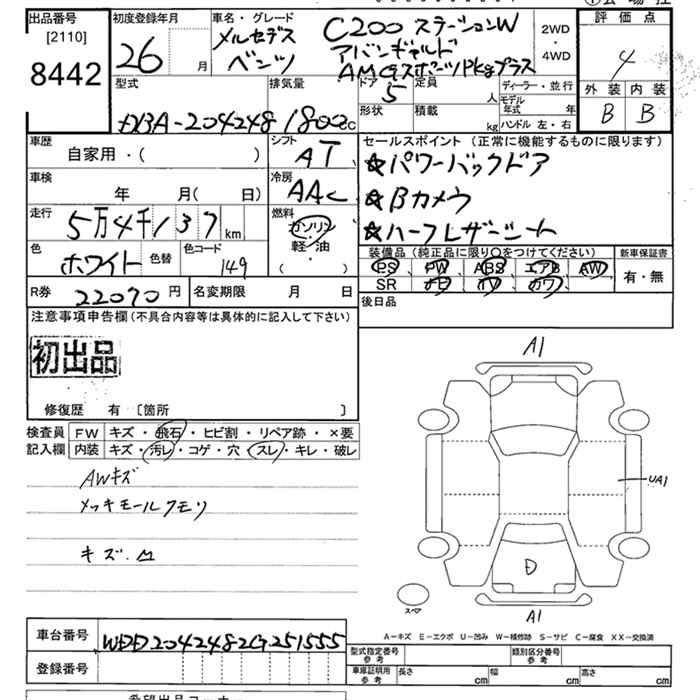 出品番号
[2110]
8442
初度登録年月
26 月
車名・グレード
メルセデス
ベンツ
C200 ステーションW
アバンギャルド
AMGスポーツPkgプラス
2WD
・
4WD
評価点
4
外装 内装
B B
型式
DBA-204248
排気量
1800cc
ドア
5
定員
人
形状
積載
kg
ディーラー・並行
モデル年式 年
ハンドル 左・右
車歴
自家用・( )
シフト
AT
車検
年 月( 日)
冷房
AAC
走行
5万4千137 km
燃料
ガソリン
・
軽・油
( )
色
ホワイト
色替
色コード
149
セールスポイント(正常に機能するものに限ります)
☆パワーバックドア
☆Bカメラ
☆ハーフレザーシート
装備品(純正品に限り○をつけてください)
PS PW ABS エアB AW
SR ナビ TV カワ
新車保証書
有・無
R券 22070 円
名変期限 月 日
後日品
注意事項申告欄(不具合内容等は具体的に記入して下さい)
初出品
修復歴 有 [箇所 ]
検査員
記入欄
FW キズ・飛石・ヒビ割・リペア跡・×要
内装 キズ・汚レ・コゲ・穴・スレ・キレ・破レ
AWキズ
メッキモールクモリ
キズ.凹
A1
UA1
D
スペア
A1
A-キズ E-エクボ U-凹み W-補修跡 S-サビ C-腐食 XX-交換済
車台番号
WDD2042482G251555
登録番号
型式指定番号
参考
類別区分番号
参考
車庫証明用
参考
長さ cm
幅 cm
高さ cm